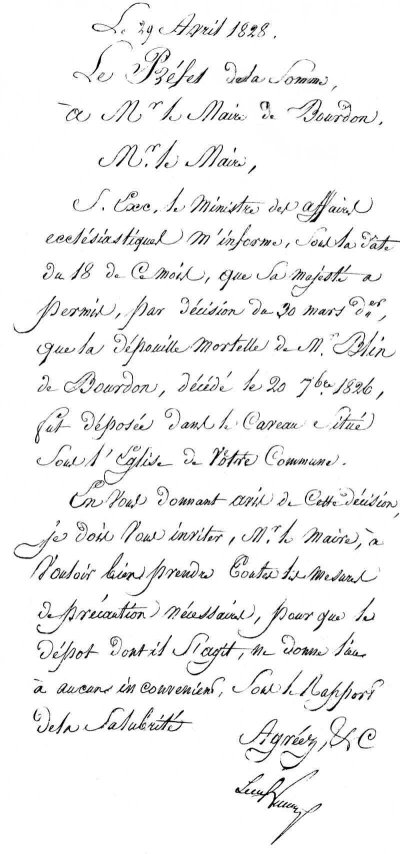 Le 29 Avril 1828.
Le Préfet de la Somme,
à Mr. le Maire de Bourdon.
Mr. le Maire,
S. Exc. le Ministre des affaires
ecclésiastiques m'informe, sous la date
du 18 de ce mois, que sa majesté a
permis, par décision du 30 mars der,
que la dépouille mortelle de Mr. Blin
de Bourdon, décédé le 20 7bre 1826,
fut déposée dans le Caveau situé
sous l'Eglise de votre Commune.
En vous donnant avis de cette décision,
je dois vous inviter, Mr. le Maire, à
vouloir bien prendre toutes les mesures
de précaution nécessaires, pour que le
dépot dont il s'agit, ne donne lieu
à aucuns inconveniens, sous le Rapport
de la Salubrité
Agréez, &c